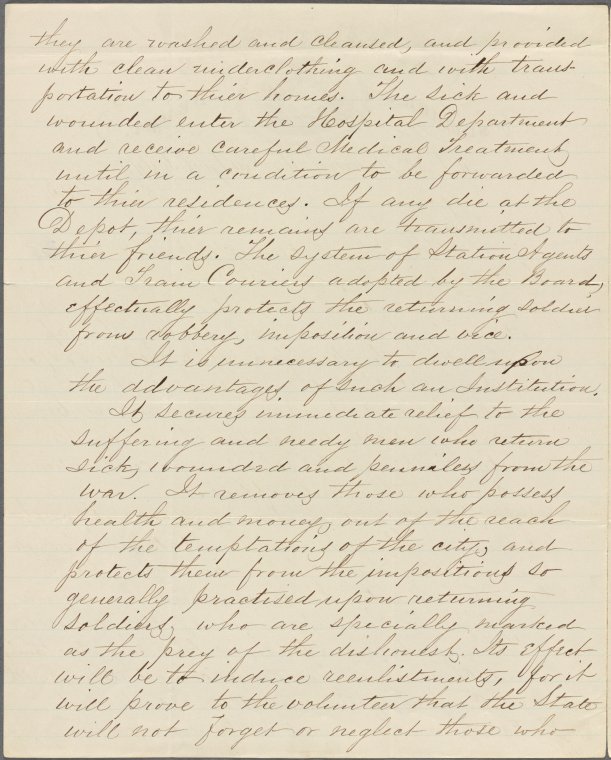 they are washed and cleansed, and provided
with clean underclothing and with trans-
portation to thier homes. The sick and
wounded enter the Hospital Department
and receive careful Medical Treatment,
until in a condition to be forwarded
to thier residences. If any die at the
Depot, thier remains are transmitted to
thier friends. The system of Station Agents
and Train Couriers adopted by the Board,
effectually protects the returning soldier
from robbery, imposition and vice.
It is unnecessary to dwell upon
the advantages of such an Institution.
It secures immediate relief to the
suffering and needy men who return
sick, wounded and penniless from the
war. It removes those who possess
health and money, out of the reach
of the temptations of the city, and
protects them from the impositions so
generally practised upon returning
soldiers, who are specially marked
as the prey of the dishonest. Its effect
will be to induce reenlistments, for it
will prove to the volunteer that the State
will not forget or neglect those who